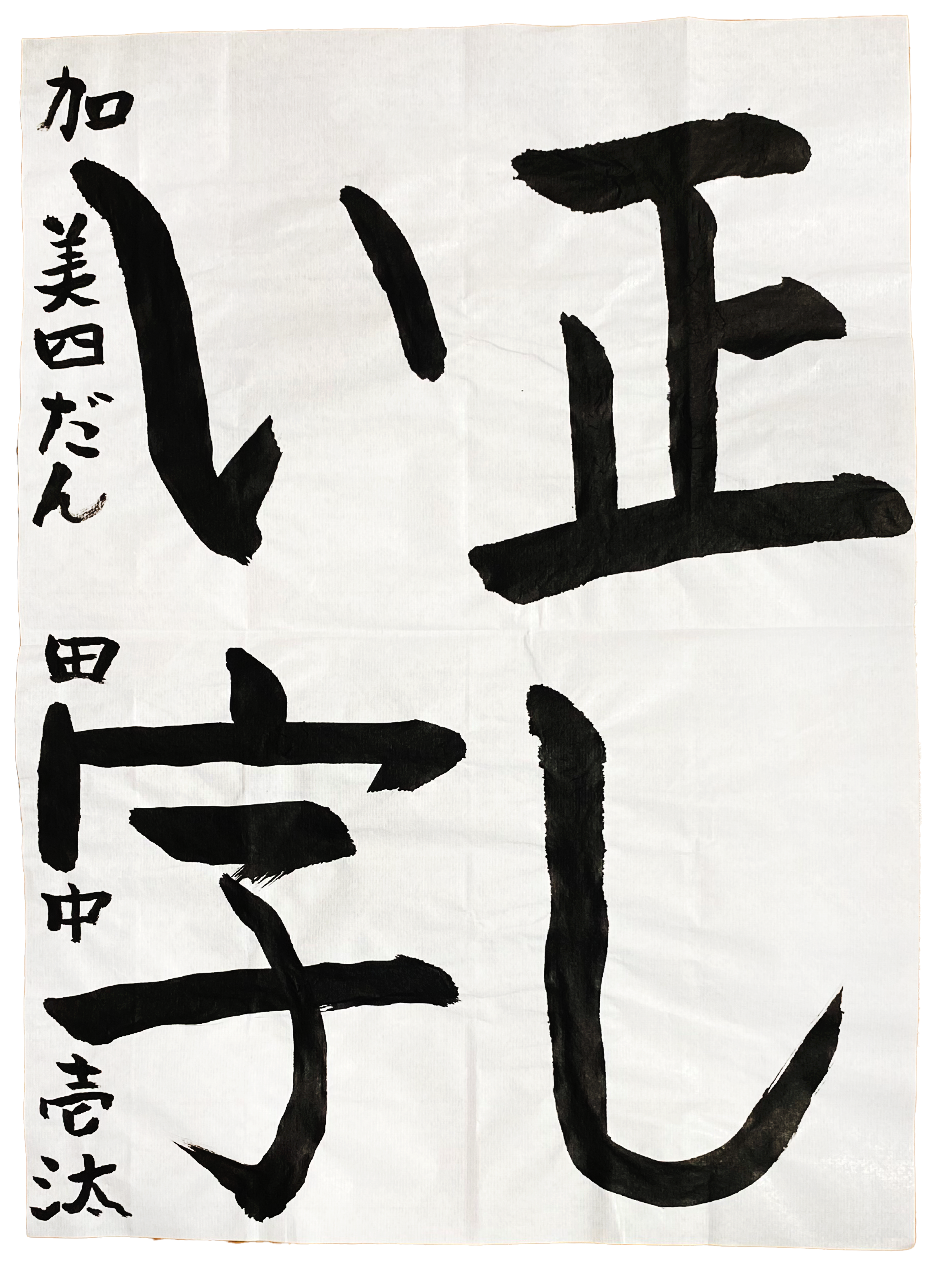 正し
い字
加美四だん田中壱汰